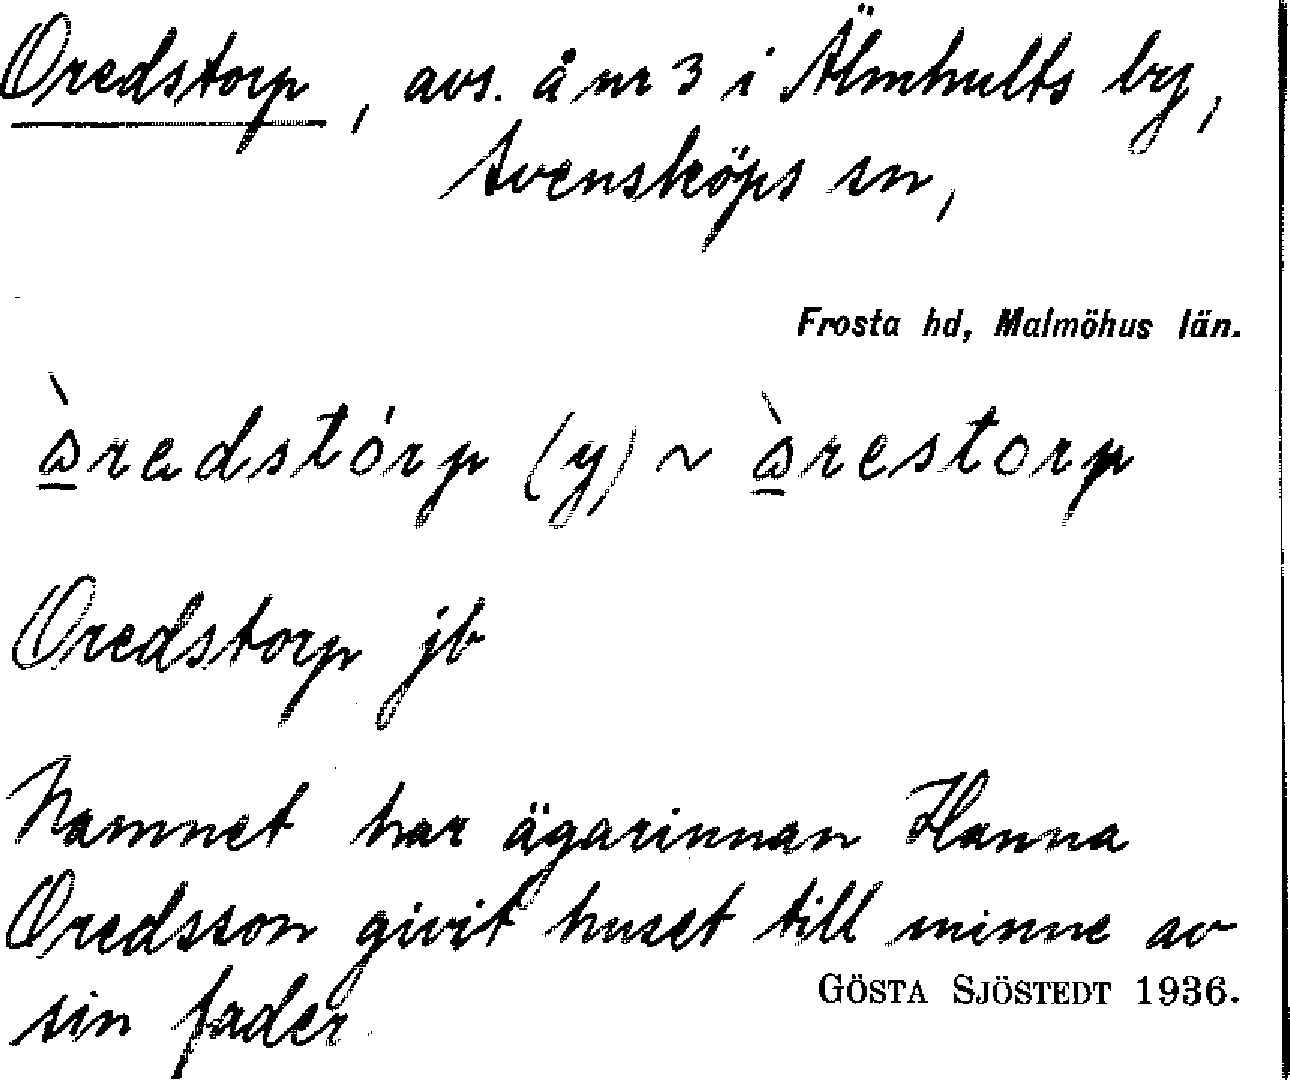 Oredstorp, avs. å nr 3 i Älmhults by,
Svensköps sn,
Frosta hd, Malmöhus län.
redstórp (y) ~ restorp
Oredstorp jb
Namnet har ägarinnan Hanna
Oredsson givit huset till minne av
sin fader.
GÖSTA SJÖSTEDT 1936.